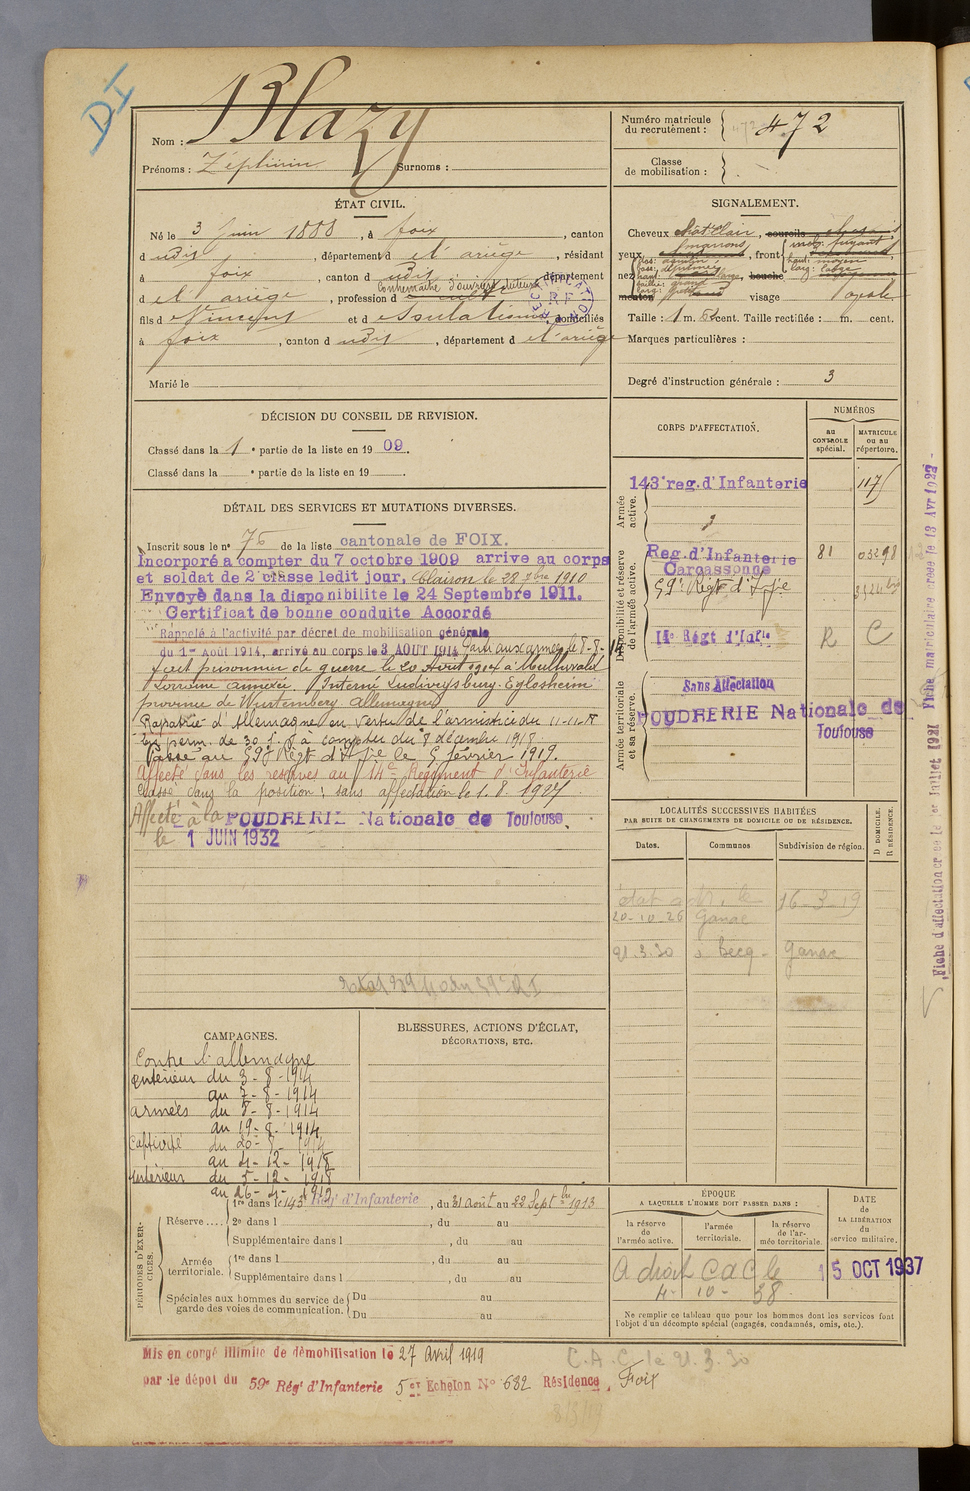 DI
Nom : Blazy
Prénoms : Zéphirin Surnoms :
Numéro matricule du recrutement : 472
Classe de mobilisation :
ÉTAT CIVIL.
Né le 3 Juin 1888, à foix, canton
d udit, département d e l'ariège, résidant
à foix, canton d udit, département
d e l'ariège, profession d Contremaître
fils d e Vincent et d e, domiciliés
à foix, canton d udit, département d e l'ariège
Marié le
SIGNALEMENT.
Cheveux chât clair, sourcils
yeux marrons, front
nez bouche
menton visage ovale
Taille : 1 m. cent. Taille rectifiée : m. cent.
Marques particulières :
Degré d'instruction générale : 3
DÉCISION DU CONSEIL DE REVISION.
Classé dans la 1e partie de la liste en 1909.
Classé dans la e partie de la liste en 19
DÉTAIL DES SERVICES ET MUTATIONS DIVERSES.
Inscrit sous le n° 76 de la liste cantonale de FOIX.
Incorporé a compter du 7 octobre 1909 arrive au corps
et soldat de 2e classe ledit jour, Clairon le 28 7bre 1910
Envoyé dans la disponibilite le 24 Septembre 1911.
Certificat de bonne conduite Accordé
Rappelé à l'activité par décret de mobilisation générale
du 1er Août 1914, arrivé au corps le 3 AOUT 1914 Parti aux armées le 8-8-14
fait prisonnier de guerre le 20 Août 1914 à
Lorraine annexée. Interné Ludwigsburg Eglosheim
province de Wurtemberg Allemagne
Rapatrié d'Allemagne en vertu de l'armistice du 11-11-18
en perm. de 30 j. à compter du 8 décembre 1918.
Passé au 59e Régt d'Infie le 5 février 1919.
Affecté dans les réserves au 14e Régiment d'Infanterie
Classé dans la position : sans affectation le 1.8.1927
Affecté à la POUDRERIE Nationale de Toulouse
le 1 JUIN 1932
CORPS D'AFFECTATION.
NUMÉROS
au CONTROLE spécial.
MATRICULE ou au répertoire.
Armée active.
143e reg. d'Infanterie
Disponibilité et réserve de l'armée active.
Reg. d'Infanterie Carcassonne 81 03298
59e Régt d'Infie
14e Régt d'Infie R C
Armée territoriale et sa réserve.
Sans Affectation
POUDRERIE Nationale de Toulouse
LOCALITÉS SUCCESSIVES HABITÉES
PAR SUITE DE CHANGEMENTS DE DOMICILE OU DE RÉSIDENCE.
Dates. Communes Subdivision de région. D DOMICILE. R RÉSIDENCE.
16-3-19
20-10-26 Ganac
21.3.30 à Becq - Ganac
CAMPAGNES.
Contre l'allemagne
intérieur du 3-8-1914
au 7-8-1914
armées du 8-8-1914
au 19-8-1914
Captivité du 20-8-1914
au 4-12-1918
intérieur du 5-12-1918
au 26-4-1919
BLESSURES, ACTIONS D'ÉCLAT,
DÉCORATIONS, ETC.
PÉRIODES D'EXERCICES.
Réserve....
1re dans le 143 Rég' d'Infanterie, du 31 août au 22 Septbre 1913
2e dans l , du au
Supplémentaire dans l , du au
Armée territoriale.
1re dans l , du au
Supplémentaire dans l , du au
Spéciales aux hommes du service de garde des voies de communication.
Du au
Du au
ÉPOQUE
A LAQUELLE L'HOMME DOIT PASSER DANS :
la réserve de l'armée active.
l'armée territoriale.
la réserve de l'armée territoriale.
DATE de LA LIBÉRATION du service militaire.
A droit CAC le
4-10-38
15 OCT 1937
Ne remplir ce tableau que pour les hommes dont les services font
l'objet d'un décompte spécial (engagés, condamnés, omis, etc.).
Mis en congé illimité de démobilisation le 27 Avril 1919
par le dépôt du 59e Rég' d'Infanterie 5e Echelon N° 682 Résidence, Foix
C.A.C. le 21.3.30